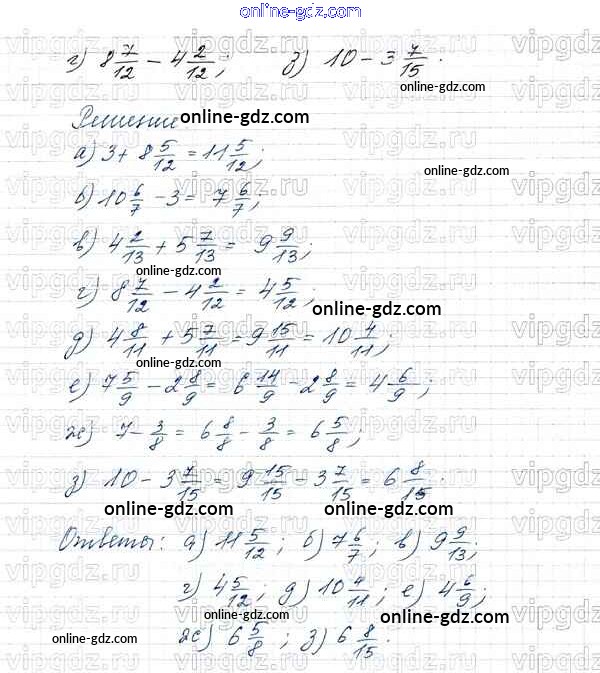 online-gdz.com
г) 8 7/12 - 4 2/12; з) 10 - 3 7/15.
online-gdz.com
Решение.
online-gdz.com
а) 3 + 8 5/12 = 11 5/12;
online-gdz.com
б) 10 6/7 - 3 = 7 6/7;
в) 4 2/13 + 5 7/13 = 9 9/13;
online-gdz.com
г) 8 7/12 - 4 2/12 = 4 5/12;
online-gdz.com
д) 4 8/11 + 5 7/11 = 9 15/11 = 10 4/11;
online-gdz.com online-gdz.com
е) 7 5/9 - 2 8/9 = 6 14/9 - 2 8/9 = 4 6/9;
online-gdz.com
ж) 7 - 3/8 = 6 8/8 - 3/8 = 6 5/8;
online-gdz.com
з) 10 - 3 7/15 = 9 15/15 - 3 7/15 = 6 8/15.
online-gdz.com online-gdz.com
Ответы: а) 11 5/12; б) 7 6/7; в) 9 9/13;
online-gdz.com online-gdz.com
г) 4 5/12; д) 10 4/11; е) 4 6/9;
online-gdz.com online-gdz.com
ж) 6 5/8; з) 6 8/15.
online-gdz.com
online-gdz.com
vipgdz.ru